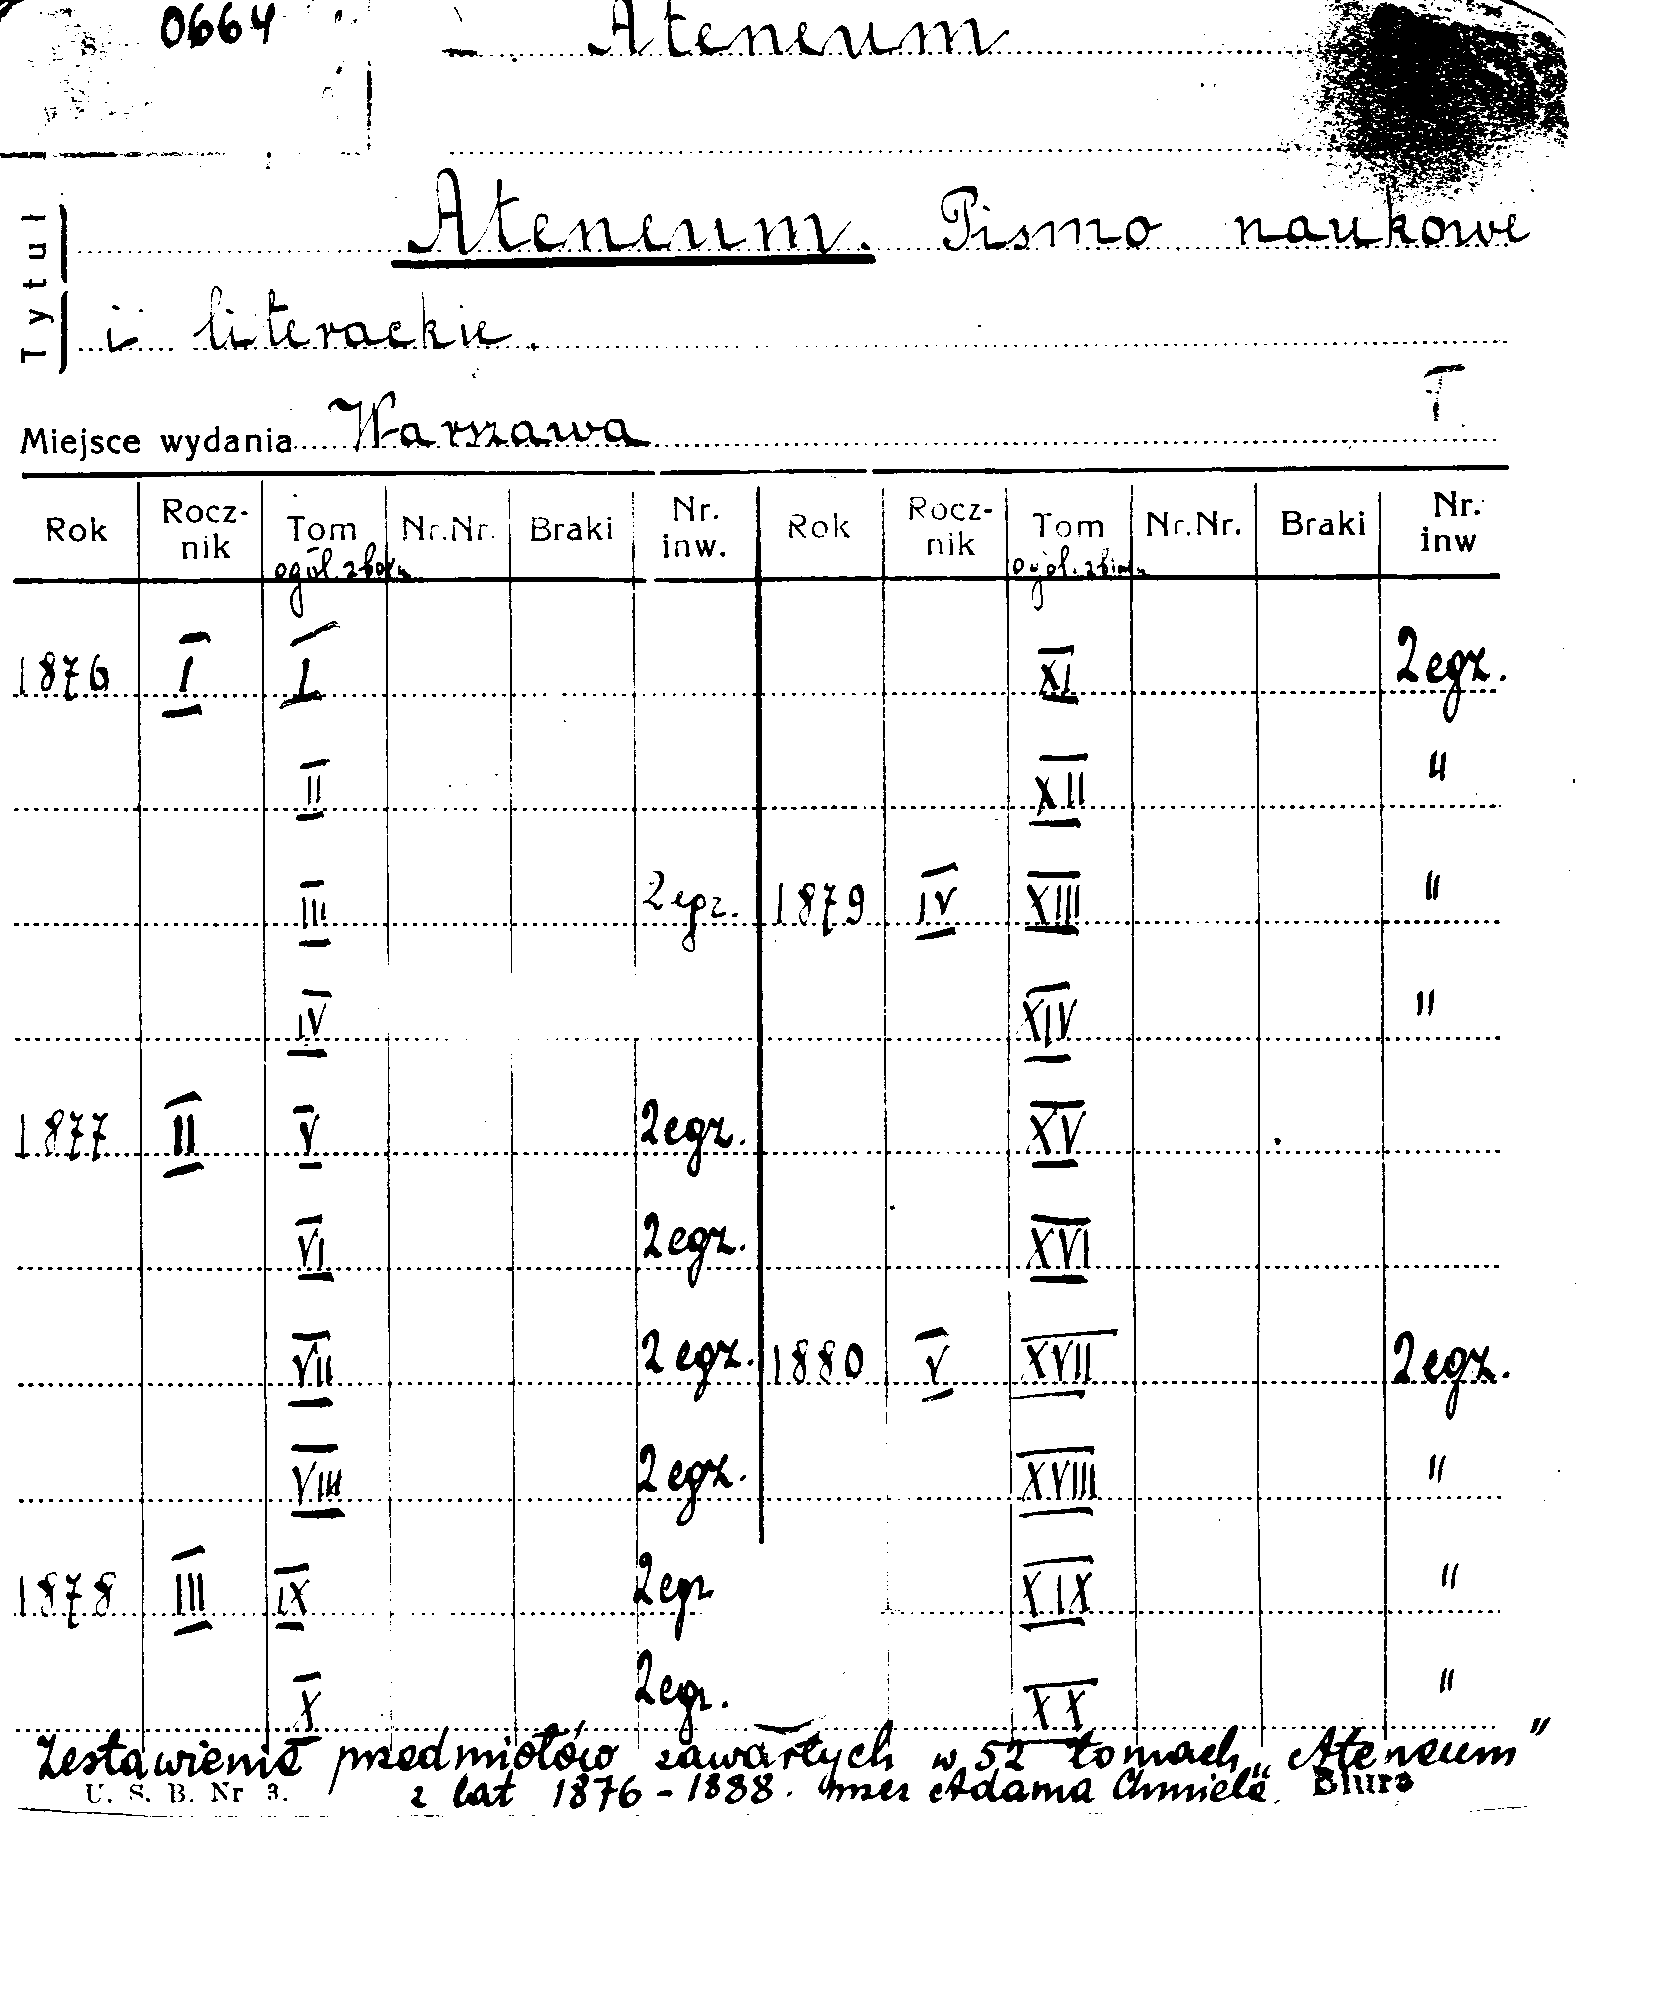 S. 0664 Ateneum
Tytuł Ateneum. Pismo naukowe
i literackie.
I
Miejsce wydania Warszawa
Rok Rocz-nik Tom Nr.Nr. Braki Nr. inw. Rok Rocz-nik Tom Nr.Nr. Braki Nr. inw
ogól. zbioru ogól. zbioru
1876 I I XI 2egz.
II XII "
III 2egz. 1879 IV XIII "
IV XIV "
1877 II V 2egz. XV
VI 2egz. XVI
VII 2egz. 1880 V XVII 2egz.
VIII 2egz. XVIII "
1878 III IX 2egz XIX "
X 2egz. XX "
Zestawienie przedmiotów zawartych w 52 tomach „Ateneum"
U. S. B. Nr 3. z lat 1876-1888. przez Adama Chmiela Biuro